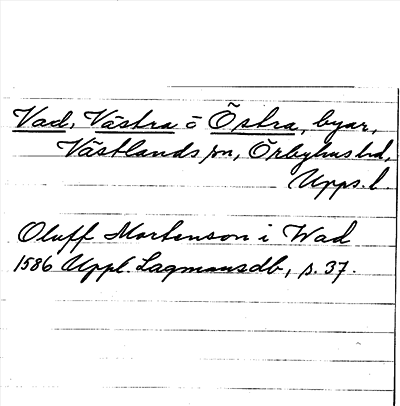 Vad, Västra o Östra, byar,
Västlands sn, Örbyhus hd,
Upps. l.
Oluff Mortenson i Wad
1586 Uppl. Lagmansdb, s. 37.